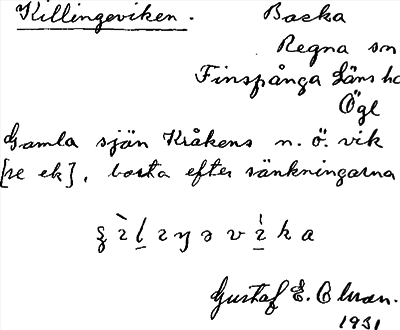 Killingeviken. Backa
Regna sn
Finspånga Läns hd
Ögl
Gamla sjön Kråkens n. ö. vik
[se ek], borta efter sänkningarna
Gustaf E.
1931